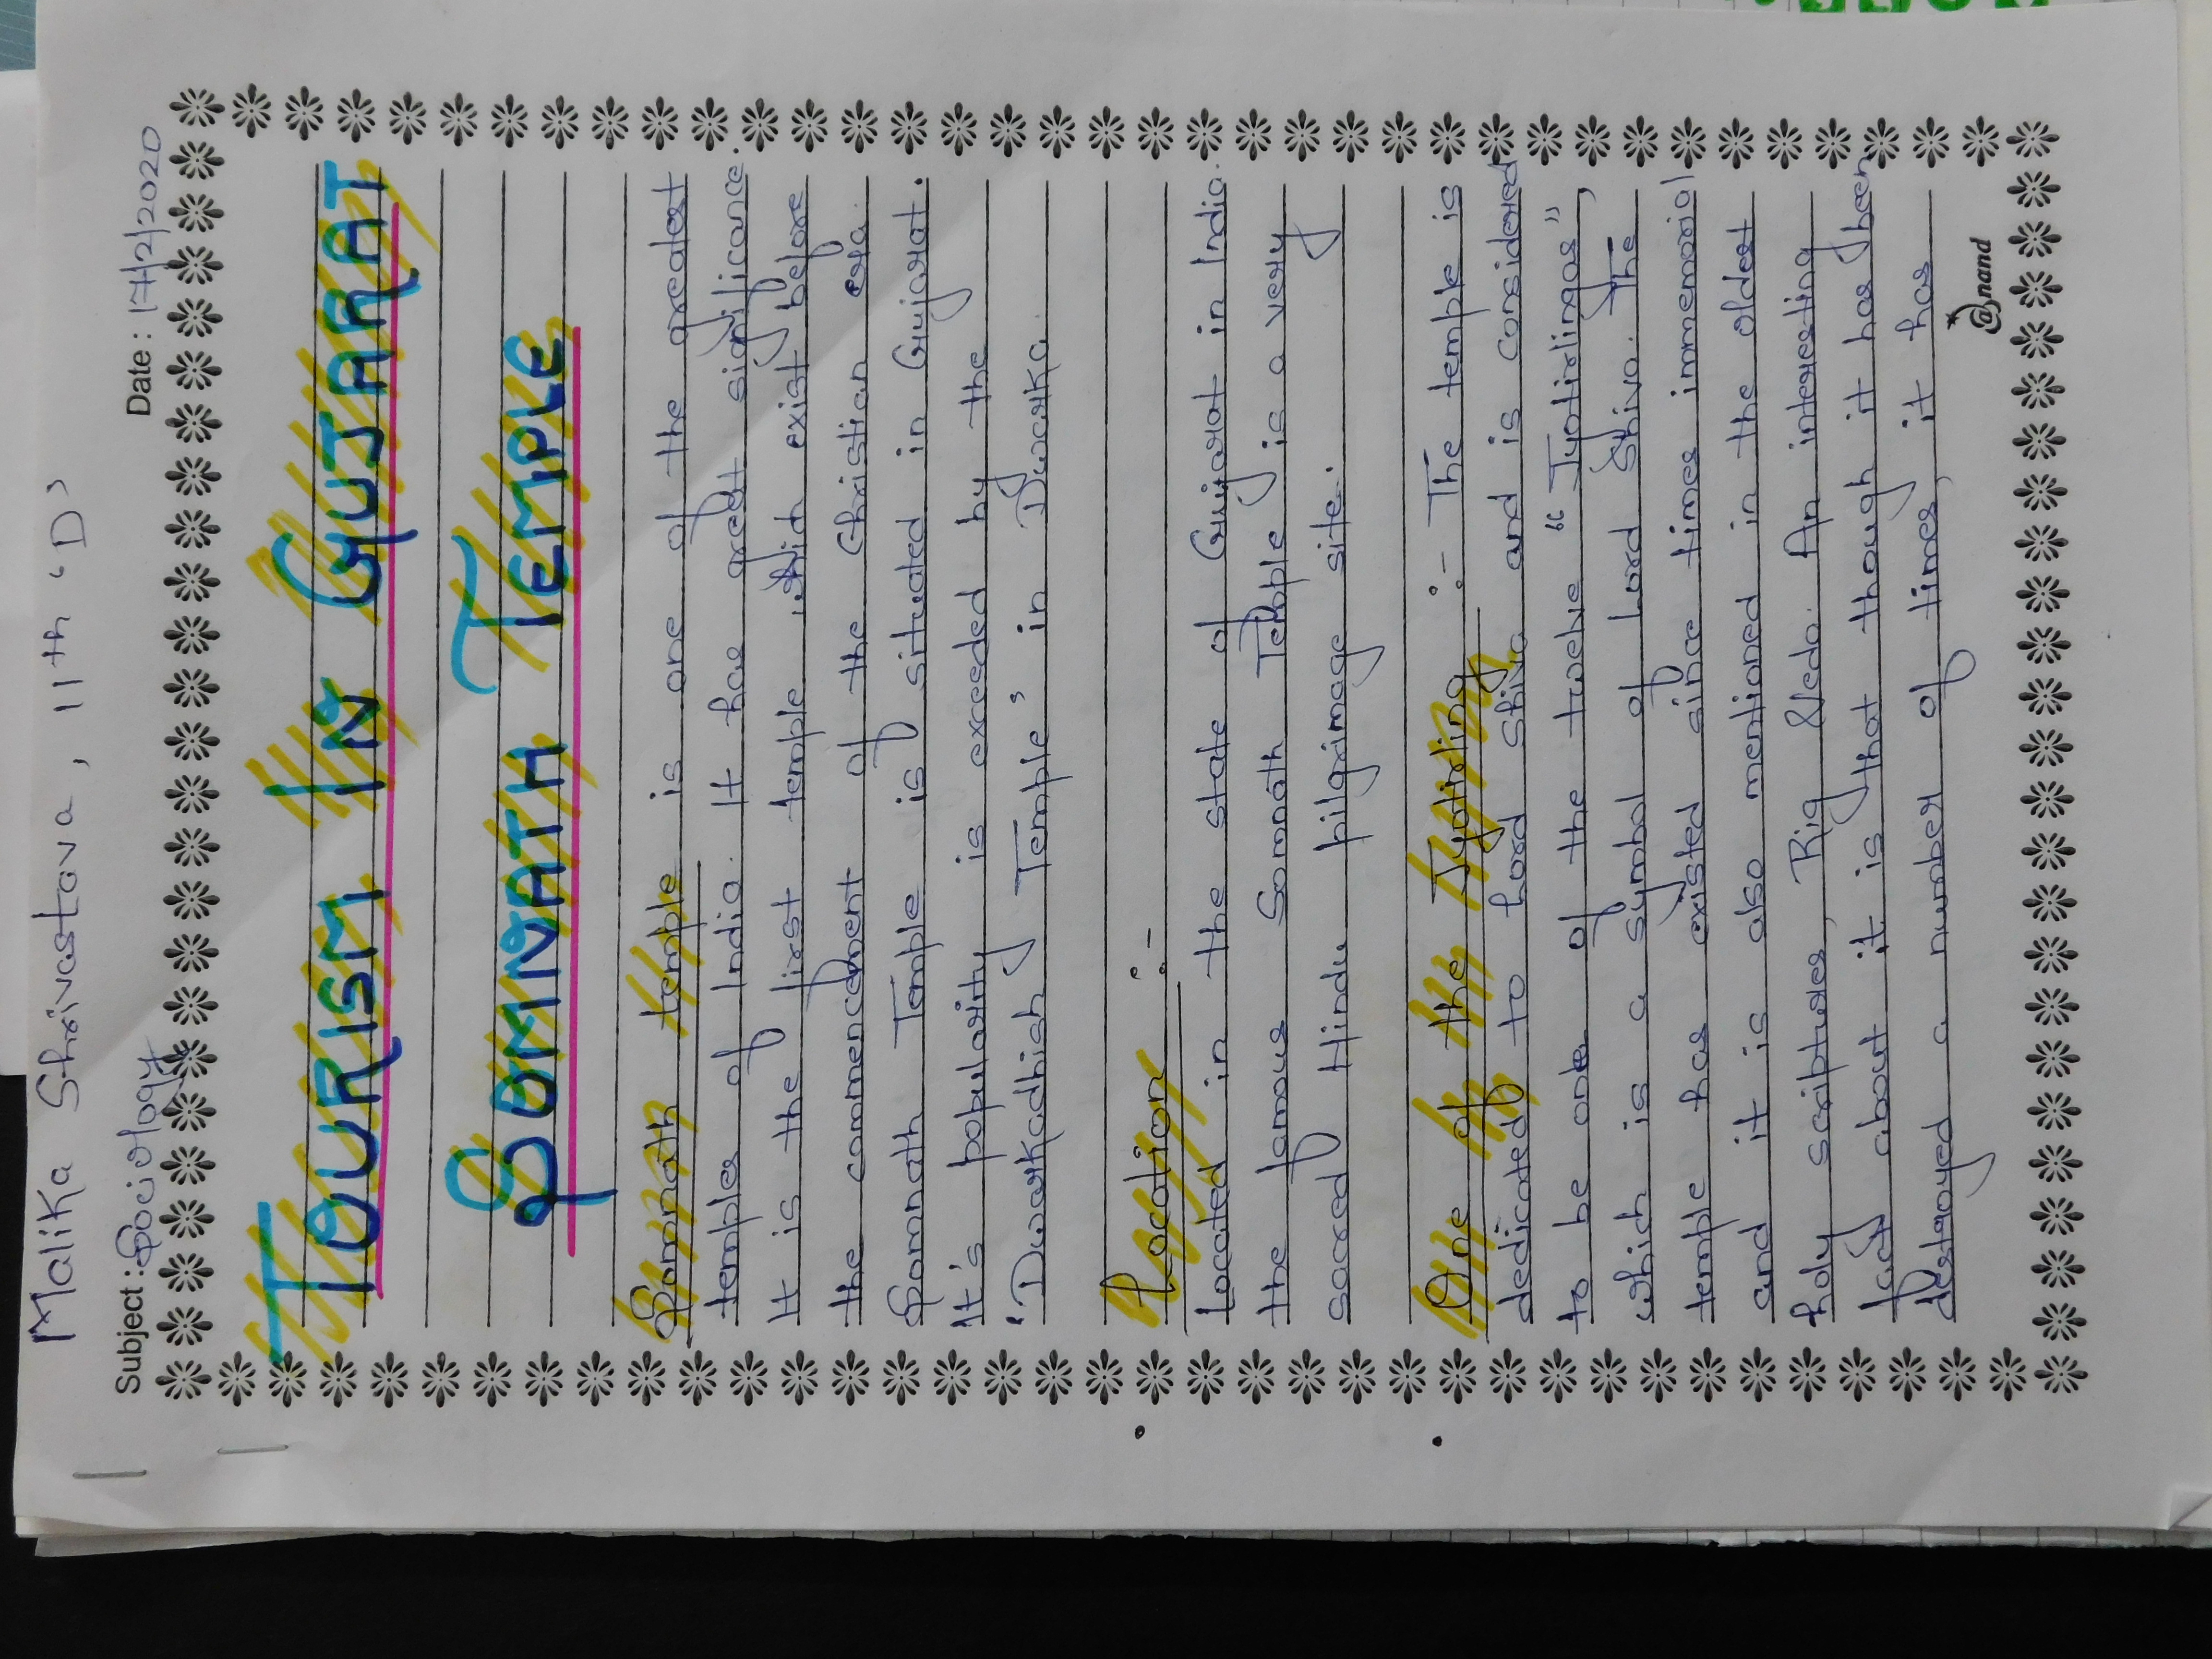 Malika Shrivastava, 11th 'D'
Subject : Sociology Date : 17/2/2020
TOURISM IN GUJARAT
SOMNATH TEMPLE
Somnath temple is one of the greatest
temples of India. It has great significance.
It is the first temple which exist before
the commencement of the Christian era.
Somnath Temple is situated in Gujarat.
It's popularity is exceeded by the
'Dwarkadhish Temple' in Dwarka.
Location :-
Located in the state of Gujarat in India.
the famous Somnath Temple is a very
sacred Hindu pilgrimage site.
One of the Jyotirling :- The temple is
dedicated to Lord Shiva and is considered
to be one of the twelve "Jyotirlingas",
which is a symbol of Lord Shiva. The
temple has existed since times immemorial
and it is also mentioned in the oldest
holy scriptures, Rig Veda. An interesting
fact about it is that though it has been
destroyed a number of times, it has
@nand